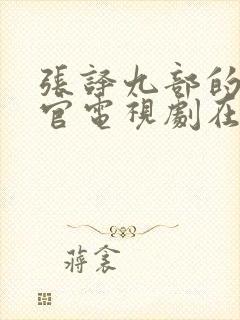 張譯九部的
官電視劇在
蔣衾